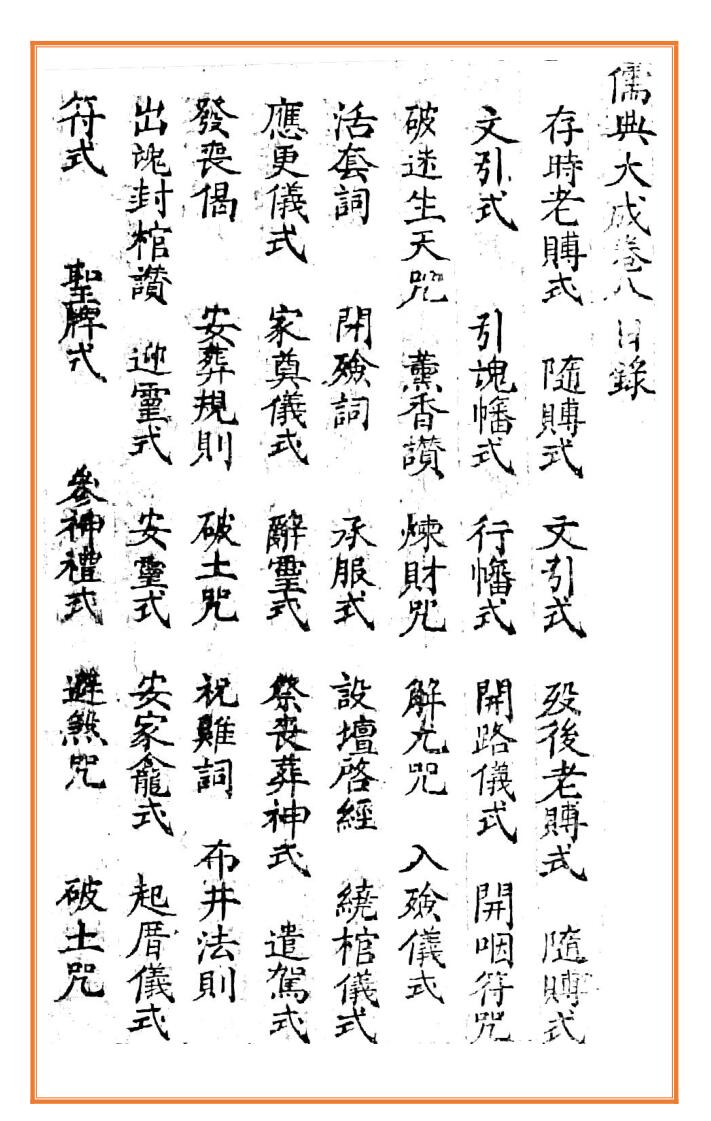 儒典大成卷八目錄
存時老賻式 隨賻式 文引式 殁後老賻式 隨賻式
文引式 引魂幡式 行幡式 開路儀式 開咽符咒
破迷生天咒 薰香讚 煉財咒 解冘咒 入殮儀式
活套詞 開殮詞 承服式 設壇啓經 繞棺儀式
應更儀式 家奠儀式 辭靈式 祭喪葬神式 遣駕式
發喪偈 安葬規則 破土咒 祝雞詞 布井法則
出魂封棺讚 迎靈式 安靈式 安家龕式 起厝儀式
符式 聖牌式 參神禮式 避煞咒 破土咒